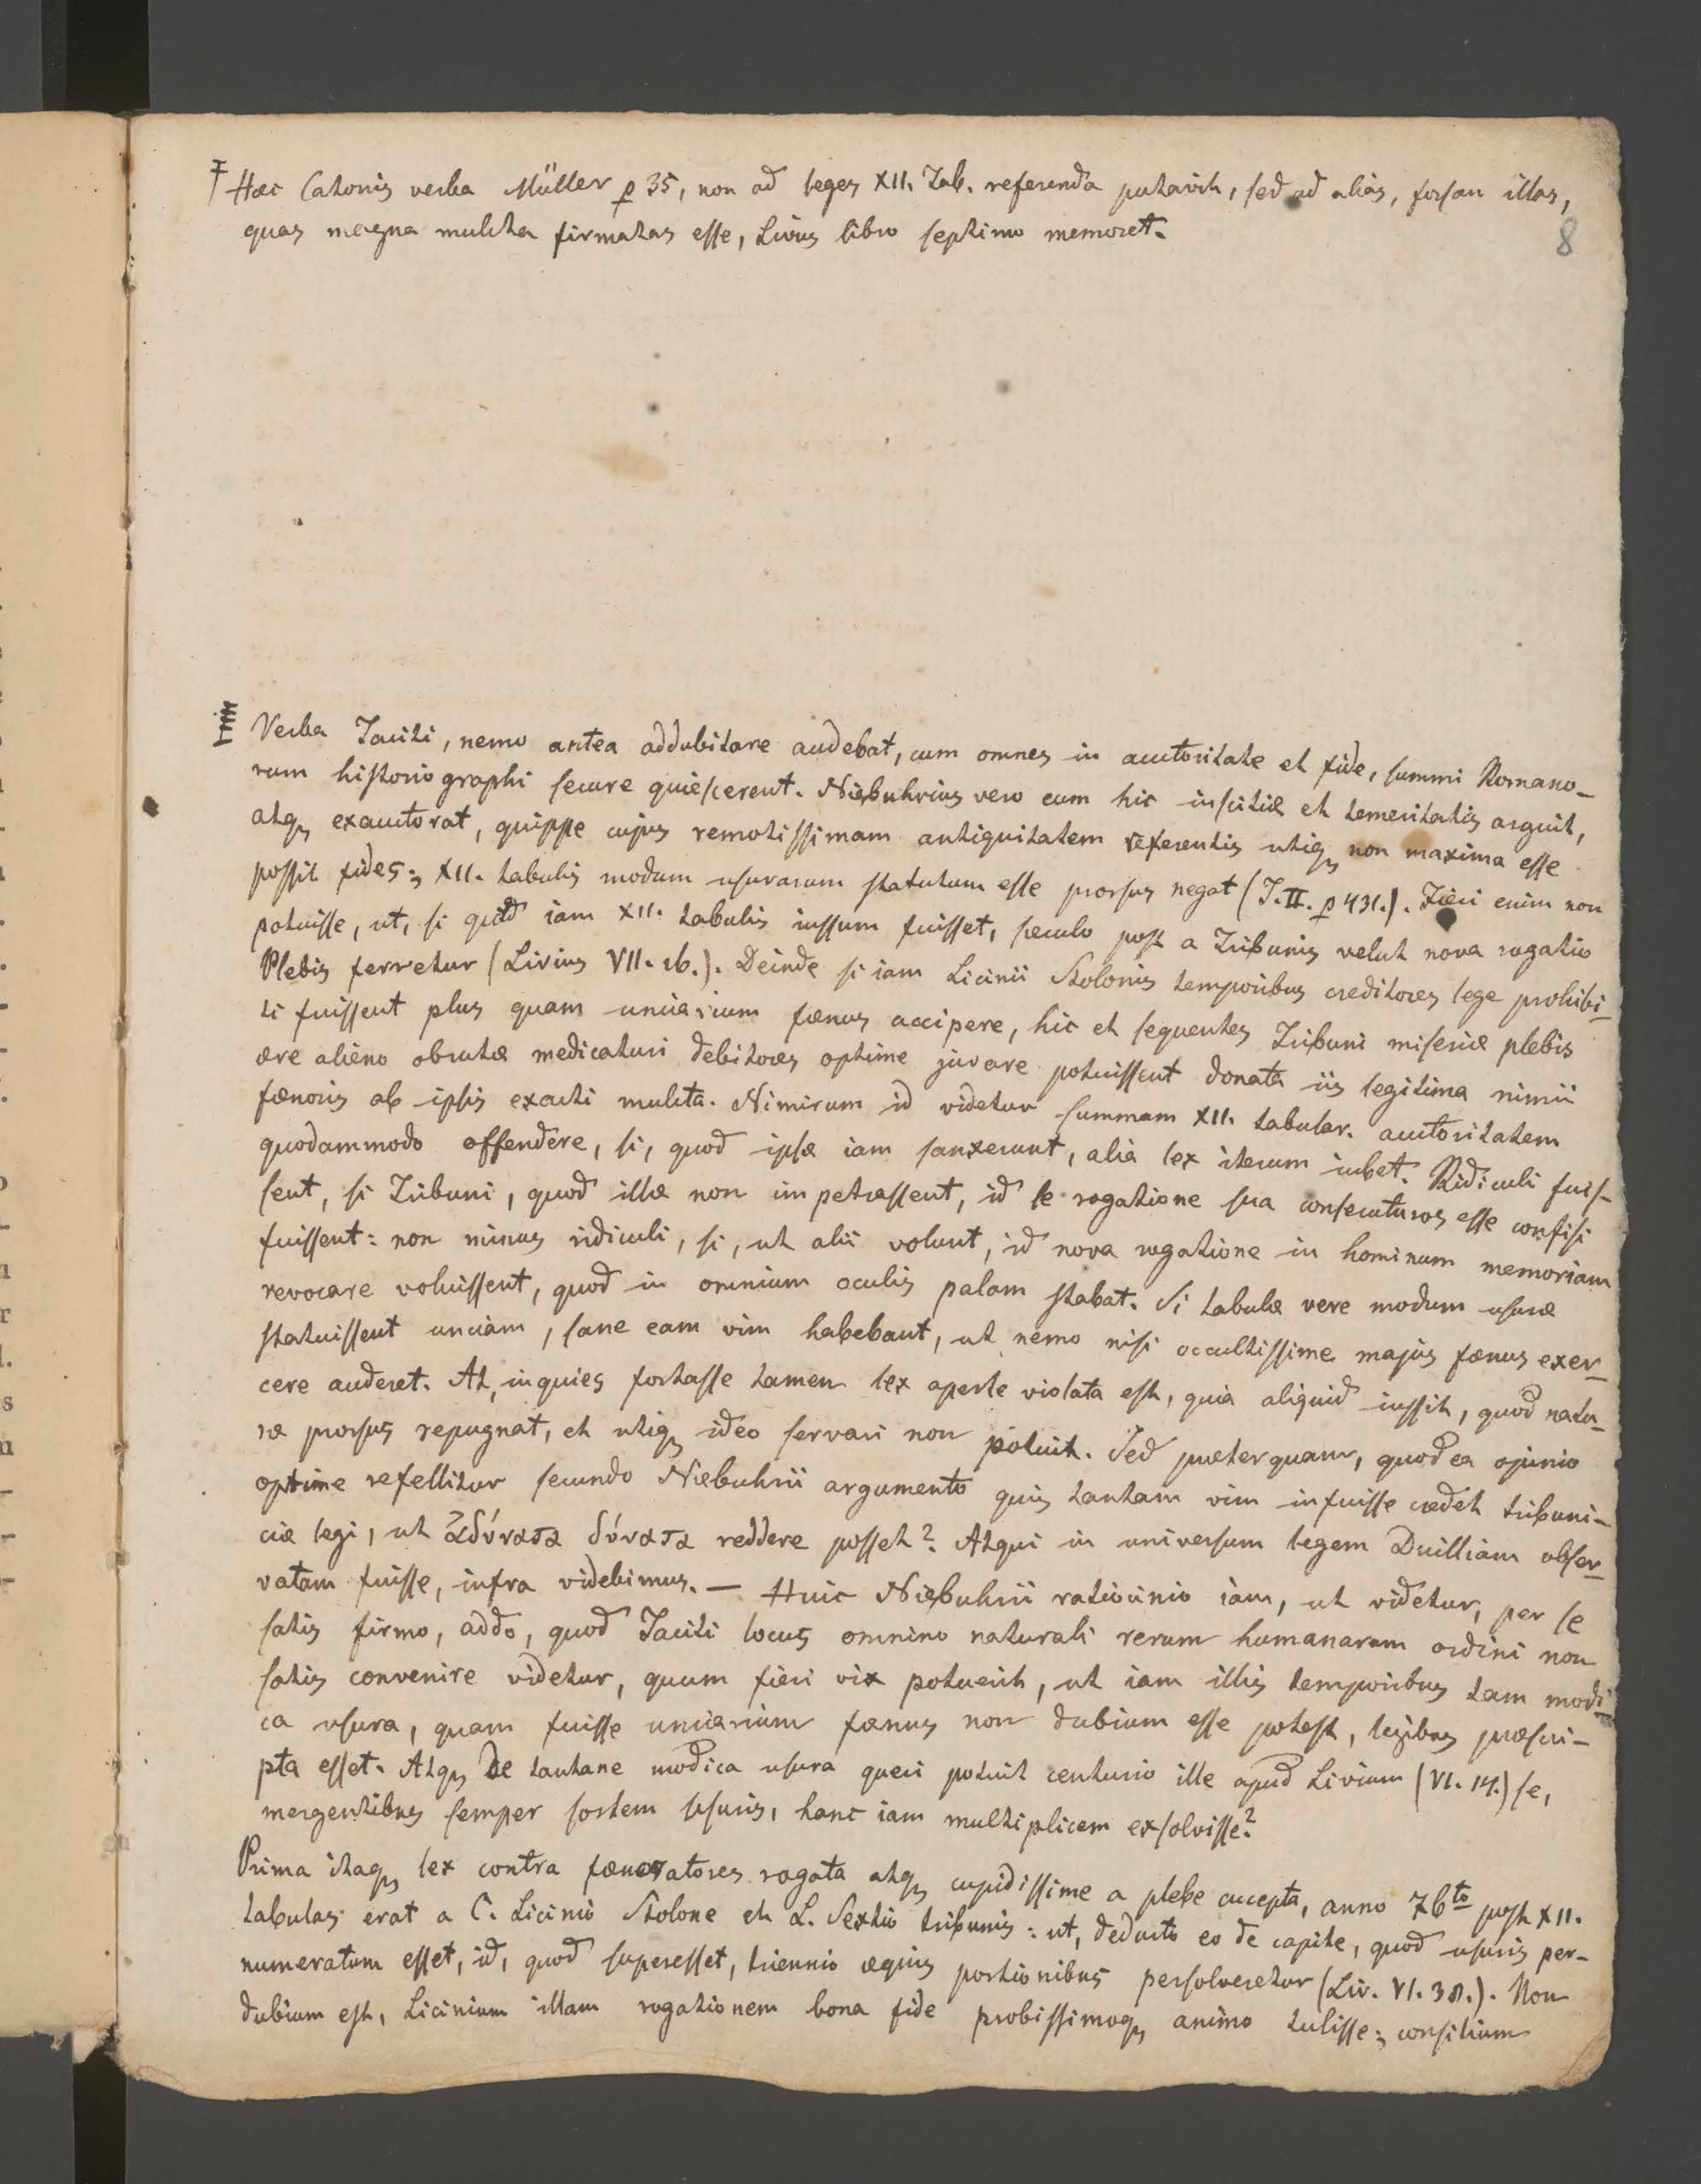 Hæc Catonis verba Müller p 35, non ad leges XII. Tab. referenda putavit, sed ad alias, forsan illas,
quas magna mulcta firmatas esse, Livius libro septimo memoret.
8
Verba Taciti, nemo antea addubitare audebat, cum omnes in auctoritate et fide, summi Romano-
rum historiographi secure quiescerent. Niebuhrius vero eum hic inscitiæ et temeritatis arguit,
atq exauctorat, quippe cujus remotissimam antiquitatem referentis utiq non maxima esse
possit fides; XII. tabulis modum usurarum statutum esse prorsus negat (T. II. p 431.). Fieri enim non
potuisse, ut, si quid iam XII. tabulis iussum fuisset, sæculo post a Tribunis velut nova rogatio
Plebis ferretur (Livius VII. 16.). Deinde si iam Licinii Stolonis temporibus creditores lege prohibi-
ti fuissent plus quam unciarium fœnus accipere, hic et sequentes Tribuni miseriæ plebis
ære alieno obrutæ medicaturi debitores optime juvare potuissent donata iis legitima nimii
fœnoris ab ipsis exacti mulcta. Nimirum id videtur summam XII. tabular. auctoritatem
quodammodo offendere, si, quod ipsæ iam sanxerunt, alia lex iterum iubet. Ridiculi fuis-
sent, si Tribuni, quod illæ non impetrassent, id se rogatione sua consecuturos esse confisi
fuissent: non minus ridiculi, si, ut alii volunt, id nova rogatione in hominum memoriam
revocare voluissent, quod in omnium oculis palam stabat. Si tabulæ vere modum usuræ
statuissent unciam, sane eam vim habebant, ut nemo nisi occultissime majus fœnus exer-
cere auderet. At, inquies fortasse tamen lex aperte violata est, quia aliquid iussit, quod natu-
ræ prorsus repugnat, et utiq ideo servari non potuit. Sed præterquam, quod ea opinio
optime refellitur secundo Niebuhrii argumento quis tantam vim infuisse credet tribuni-
ciæ legi, ut ἀδύνατα δύνατα reddere posset? Atqui in universum legem Duilliam obser-
vatam fuisse, infra videbimus. — Huic Niebuhrii ratiocinio iam, ut videtur, per se
satis firmo, addo, quod Taciti locus omnino naturali rerum humanarum ordini non
satis convenire videtur, quum fieri vix potuerit, ut iam illis temporibus tam modi-
ca usura, quam fuisse unciarium fœnus non dubium esse potest, legibus præscri-
pta esset. Atq de tantane modica usura queri potuit centurio ille apud Livium (VI. 14.) se,
mergentibus semper sortem usuris, hanc iam multiplicem exsolvisse?
Prima itaq lex contra fœneratores rogata atq cupidissime a plebe accepta, anno 76to post XII.
tabulas erat a C. Licinio Stolone et L. Sextio tribunis: ut, deducto eo de capite, quod usuris per-
numeratum esset, id, quod superesset, triennio æquis portionibus persolveretur (Liv. VI. 38.). Non
dubium est, Licinium illam rogationem bona fide probissimoq animo tulisse; consilium